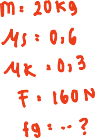 m = 20 kg
μs = 0,6
μk = 0,3
F = 160 N
fg = ... ?